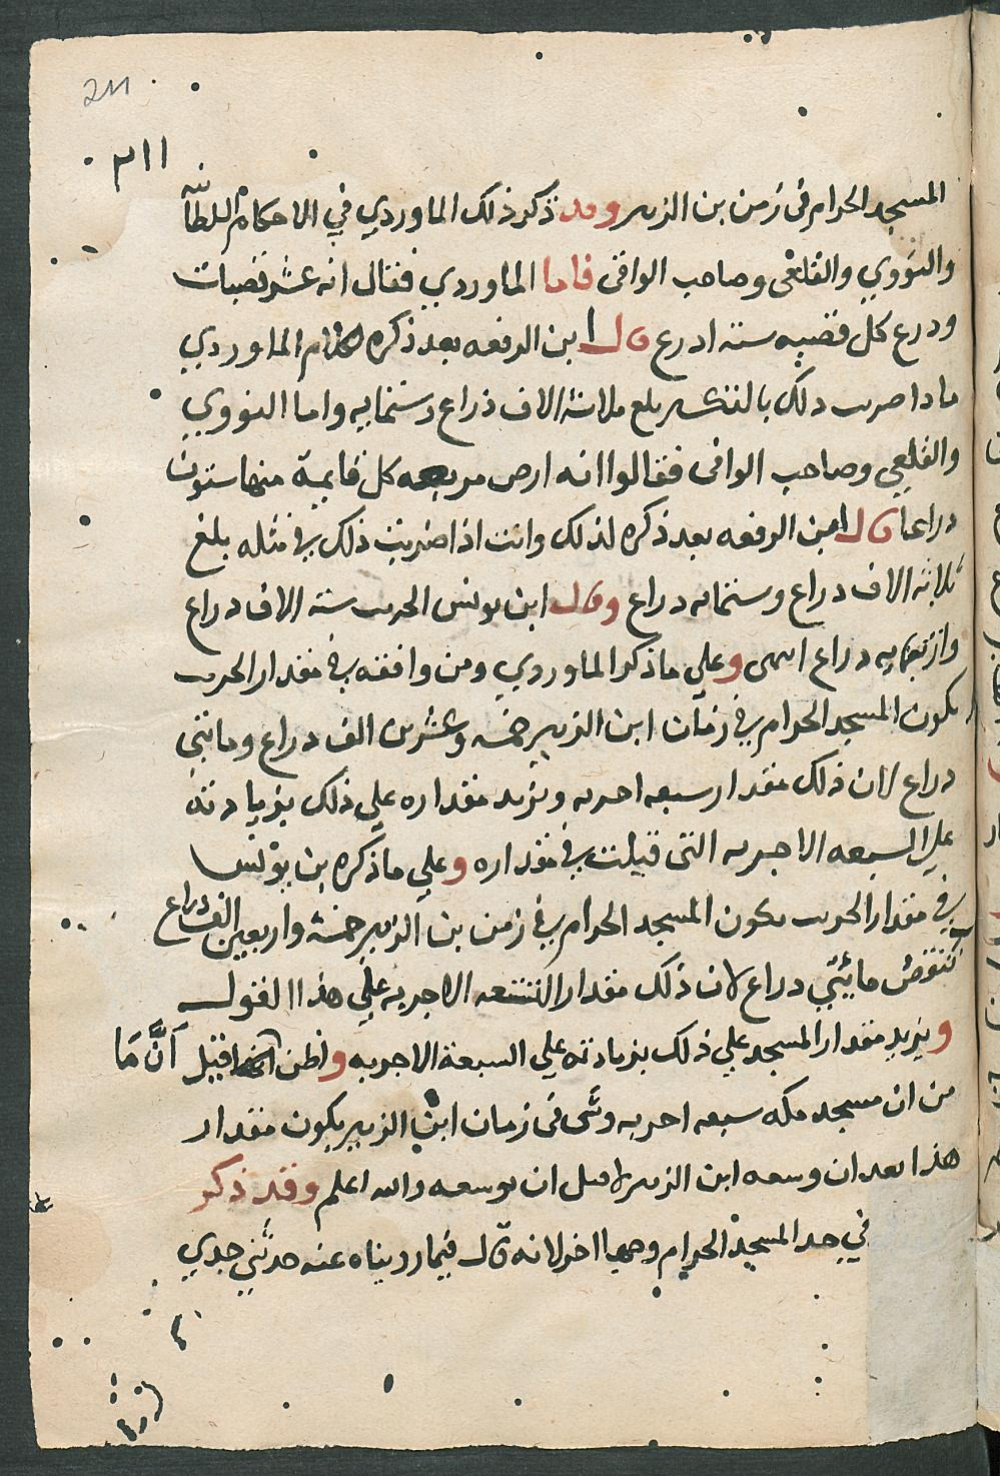 211
٢١١
المسجد الحرام في زمن بن الزبير وقد ذكر ذلك الماوردي في الاحكام السلطانيه
والنووي والقلعي وصاحب الوافي فاما الماوردي فقال انه عشر قصبات
ودرع كل قصبه ستة ادرع قال ابن الرفعه بعد ذكره لكلام الماوردي
فاذا ضربت ذلك بالتكسير بلغ ثلاثة الاف ذراع وستمايه واما النووي
والقلعي وصاحب الوافي فقالوا انه ارض مربعه كل قايمة منها ستون
دراعا قال ابن الرفعه بعد ذكره لذلك وانت اذا ضربت ذلك في مثله بلغ
ثلاثة الاف دراع وستمايه دراع وقال ابن يونس الجريب ستة الاف دراع
واربعمايه دراع انتهى وعلي ما ذكر الماوردي ومن وافقه في مقدار الجريب
يكون المسجد الحرام في زمان ابن الزبير خمسه وعشرين الف دراع ومايتي
دراع لان ذلك مقدار سبعه اجربه ويزيد مقداره علي ذلك بزيادته
علي السبعه الاجربه التي قيلت في مقداره وعلي ما ذكره بن يونس
في مقدار الجريب يكون المسجد الحرام في زمن بن الزبير خمسة واربعين الف دراع
تنقص مايتي دراع لان ذلك مقدار السبعه الاجربه علي هذا القول
ويزيد مقدار المسجد علي ذلك بزيادته علي السبعة الاجربه واظن قيل أنَّ مَا
من ان مسجد مكه سبعه اجربه وشى في زمان ابن الزبير يكون مقدار
هذا بعد ان وسعه ابن الزبير لا قبل ان يوسعه والله اعلم وقد ذكر
في حد المسجد الحرام اخر لانه قال فيما رويناه عنه حدثني جدي